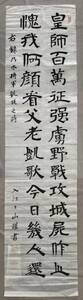 皇師百萬征強虜野戰攻城屍作山
愧我何顔看父老凱歌今日幾人還
右録乃木将軍